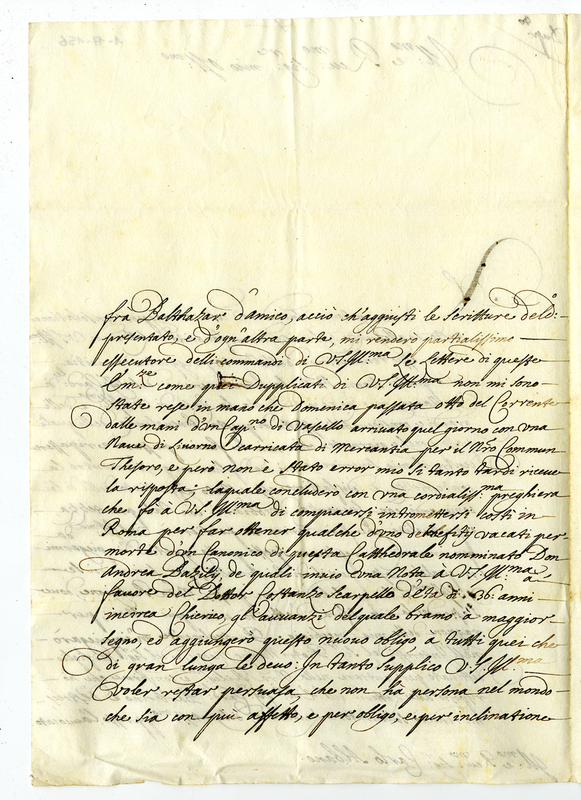 frà Balthasar d'Amico, acciò ch'aggiusti le scritture del do:
presentato, e d'ogn'altra parte, mi renderò partialissimo
essecutore delli commandi di V.S. Ill.ma Le lettere di queste
come supplicati di V.S. Ill.ma non mi sono
state rese in mano che Domenica passata otto del Corrente
dalle mani d'un Cap.no di Vascello arrivato quel giorno con una
Nave di Livorno carricata di Mercantia per il Nro Commun
Thesoro, e però non è stato error mio si tanto tardi riceve
la risposta; laquale concluderò con una cordialiss.ma preghiera
che fò à V.S. Ill.ma di compiacersi intromettersi costì in
Roma per far ottener qualche d'uno de benefitij vacati per
morte d'un Canonico di questa Catthedrale nominato Don
Andrea Bazily, de quali invio una Nota à V.S. Ill.ma á
favore del Dottor Costanzo Scarpello d'età di 36. anni
incirca Chierico, gl'avvanzi del quale bramo à maggior
segno, ed aggiungerò questo nuovo obligo, à tutti quei che
di gran lunga le devo: In tanto supplico V.S. Ill.ma
voler restar persuasa, che non ha persona nel mondo
che sia con più affetto, e per obligo, e per inclinatione